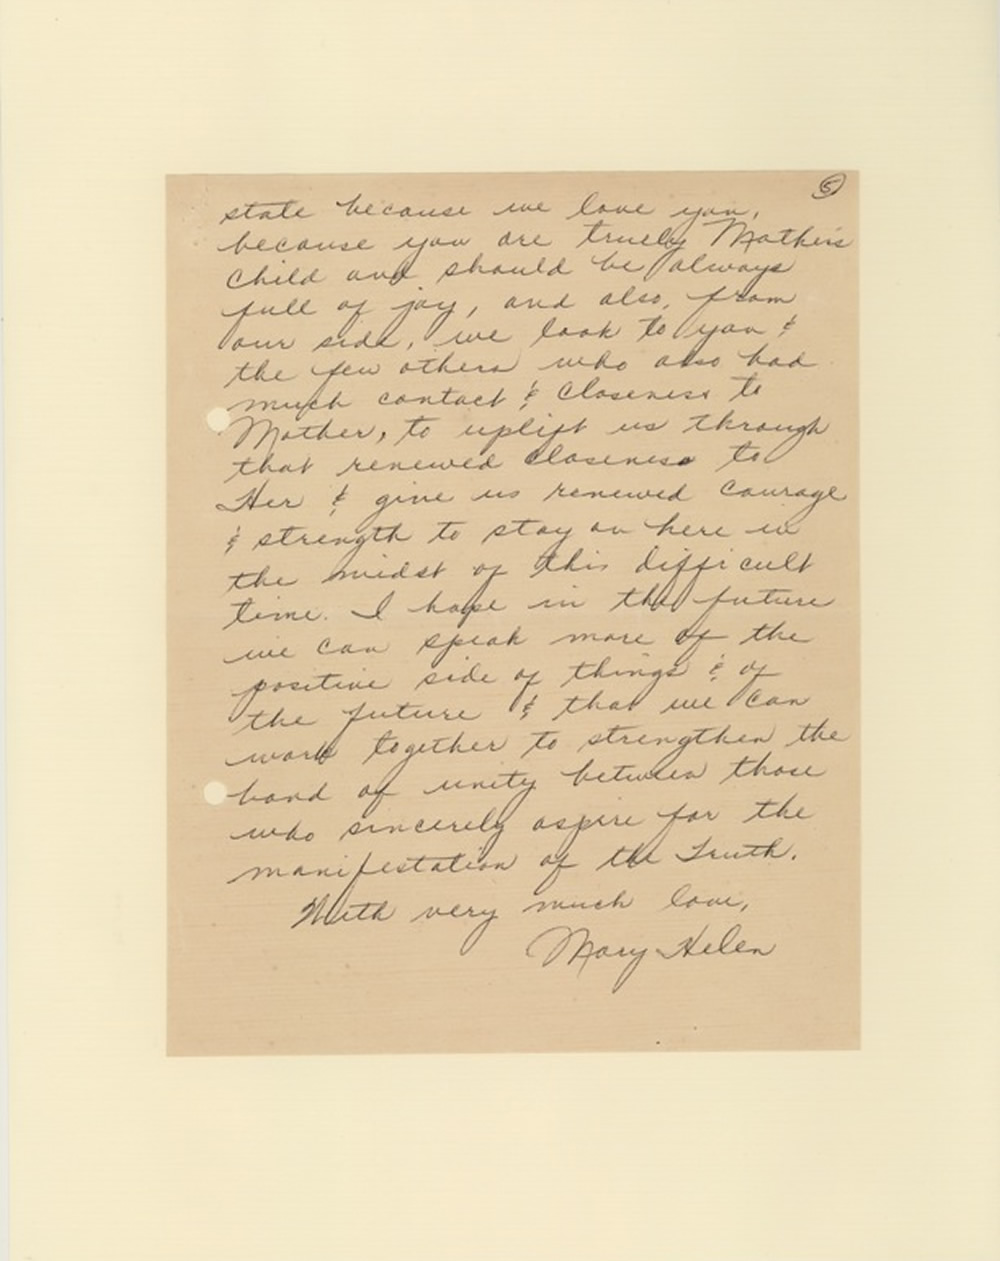 5
state because we love you,
because you are truely Mother's
child and should be always
full of joy, and also, from
our side, we look to you &
the few others who also had
much contact & closeness to
Mother, to uplift us through
that renewed closeness to
Her & give us renewed courage
& strength to stay on here in
the midst of this difficult
time. I hope in the future
we can speak more of the
positive side of things & of
the future & that we can
work together to strengthen the
bond of unity between those
who sincerely aspire for the
manifestation of the Truth.
With very much love,
Mary Helen